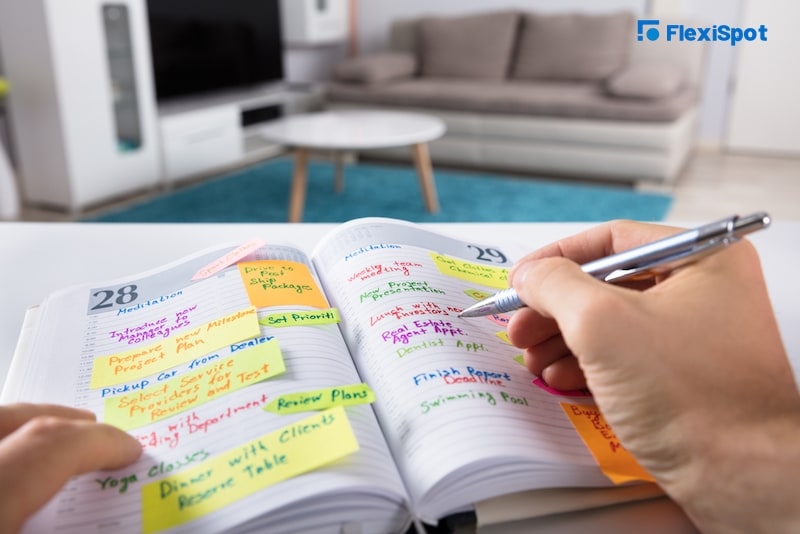 FlexiSpot
28
Meditation
Introduce new
Manager to
colleagues
Prepare new Milestone
Project Plan
Pickup Car from Dealer
Select Service
Providers for
Review and Test
with
Department
Yoga Classes
Dinner with Clients
Reserve Table
Drive to
Post
Ship
Package
Set Prioriti
Review Plans
29
Meditation
Weekly team
meeting
New Project
Presentation
Lunch with
investors
Real Estate
Agent Appt.
Dentist Appt.
Finish Report
Deadline
Swimming Pool